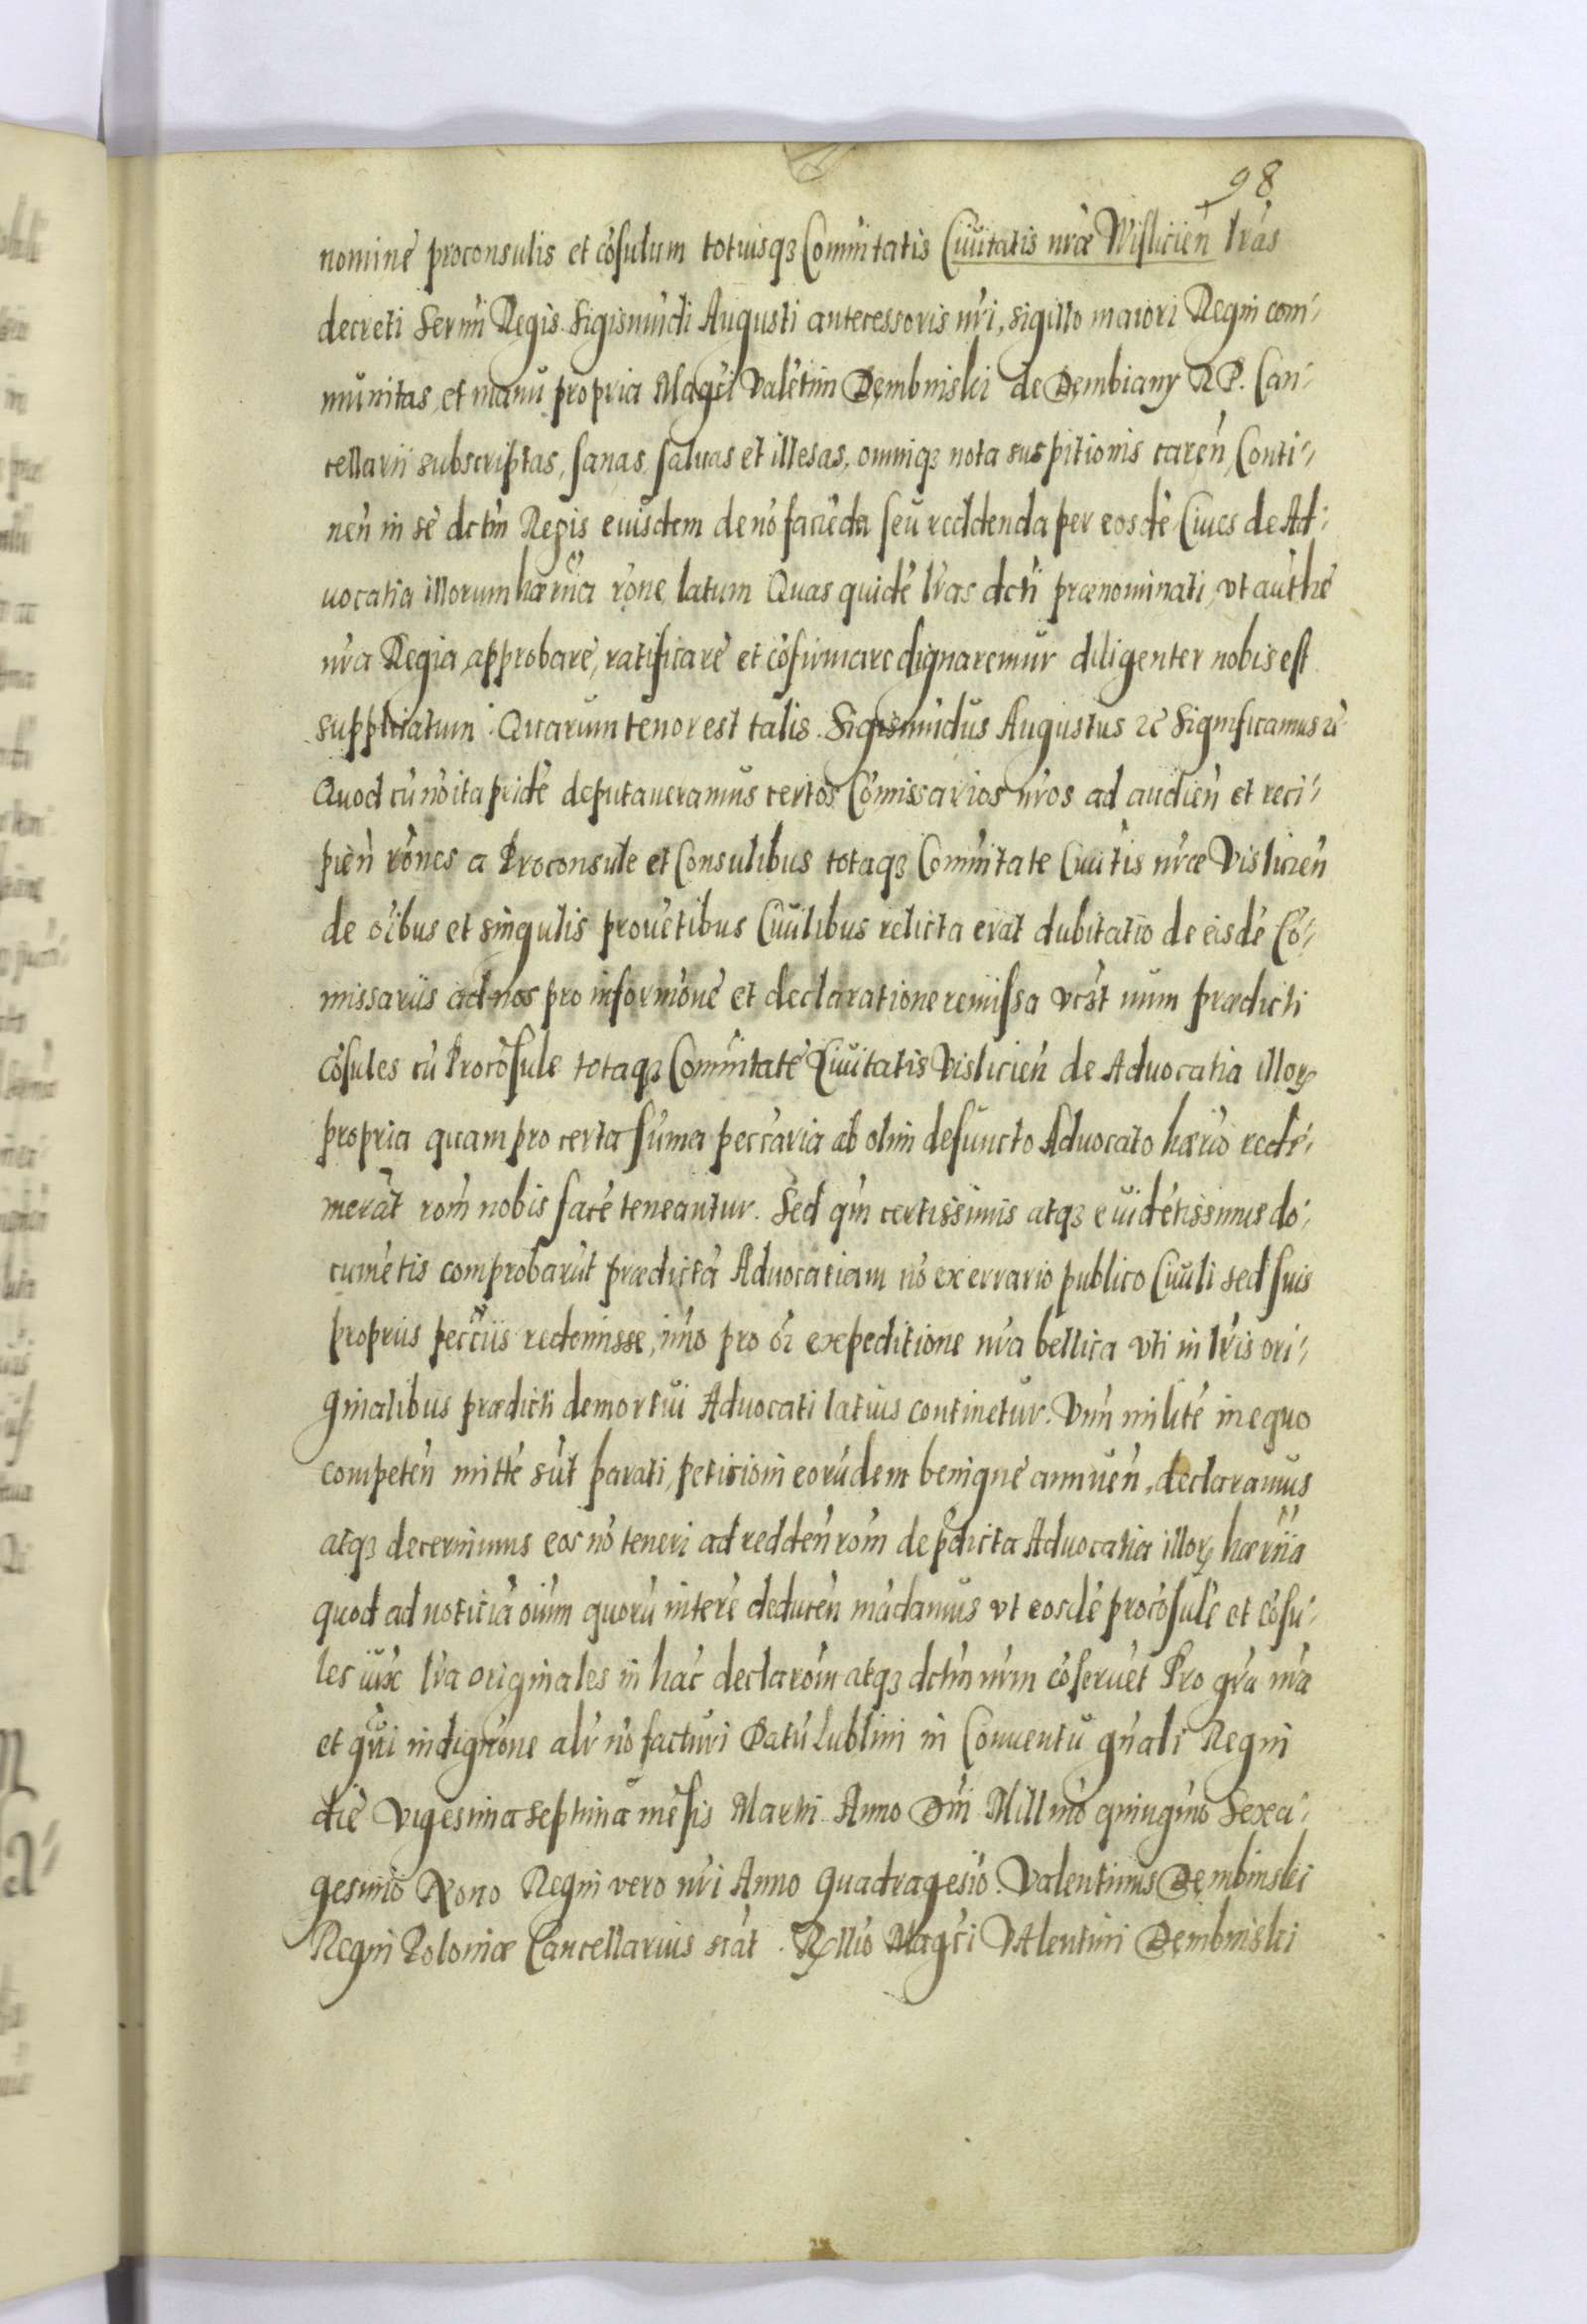 98
nomine proconsulis et cōsulum totiusqȝ Com̄itatis Ciuitatis nr̄æ Wislicien̄ lr̄as
decreti Ser͞mi Regis Sigismūdi Augusti antecessoris nr̄i, sigillo maiori Regni com-
munitas, et manu propria Mag͞ci Valētini Dembinski de Dembiany R P. Can-
cellarii subscriptas, sanas, saluas et illesas, omniqȝ nota suspitionis caren̄, Conti-
nen̄ in se dct͞m Regis eiusdem de nō faciēda seu reddenda per eosdē Ciues de Ad-
uocatia illorum hær͞ria rōne, latum Quas quidē lr̄as dct͞i prænominati, vt authē
nr̄a Regia, approbare, ratificare et cōfirmare dignaremur diligenter nobis est
supplicatum. Quarum tenor est talis. Sigismūdus Augustus ꝛc̄ Significamus ꝛc̄
Quod cū nō ita pridē deputaueramus certos Cōmissarios nr̄os ad audien̄ et reci-
pien̄ rōnes a Proconsule et Consulibus totaqȝ Com̄itate Ciuit͞is nr̄æ Vislicien̄
de oībus et singulis prouētibus Ciuilibus relicta erat dubitatio de eisdē Cō-
missariis ad nos pro informōne et declaratione remissa vtrt num prædicti
cōsules cū Procōsule totaqȝ Com̄itate Ciuitatis Vislicien̄ de Aduocatia illorꝝ
propria quam pro certa sūma pec͞caria ab olim defuncto Aduocato hær͞io redē-
merāt rom̄ nobis facē teneantur. Sed qm̄ certissimis atqȝ euidētissimis do-
cumētis comprobarūt prædictā Aduocatiam nō ex errario publico Ciuili sed suis
propriis pec͞ciis redemisse, im̄o pro oī expeditione nr̄a bellica vti in lr̄is ori-
ginalibus prædicti demortui Aduocati latius continetur. Vnū militē in equo
competen̄ mittē sūt parati, petitioni eorūdem benigne annuen̄, declaramus
atqȝ decernimus eos nō teneri ad redden̄ rom̄ de p̄dicta Aduocatia illorꝝ hær͞ria
quod ad noticiā oīum quorū interē deducen̄ mādamus vt eosdē procōsulē et cōsu-
les iux̄ lr̄a originales in hac declarom̄ atqȝ dct͞m nr̄m cōseruēt Pro gr̄a nr̄a
et qui indignōne alr̄ nō facturi Datū Lublini in Conuentu gn̄ali Regni
die Vigesima septima mēsis Martii Anno Dn̄i Millm̄o quingm̄o Sexa-
gesimo Nono Regni vero nr̄i Anno Quadragesi͞o. Valentinus Dembinski
Regni Poloniæ Cancellarius scāt. Rellio Mag͞ci Valentini Dembinski